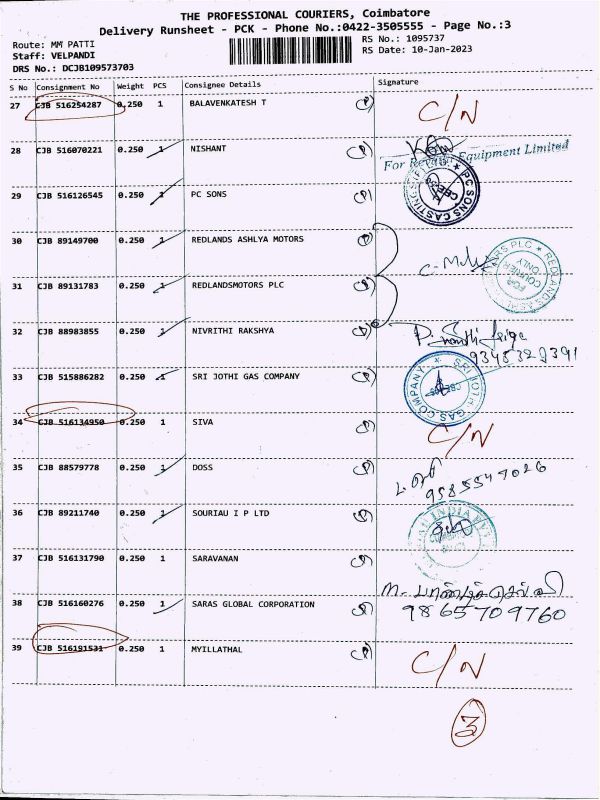 THE PROFESSIONAL COURIERS, Coimbatore
Delivery Runsheet - PCK - Phone No.:0422-3505555 - Page No.:3
Route: MM PATTI
RS No.: 1095737
Staff: VELPANDI
RS Date: 10-Jan-2023
DRS No.: DCJB109573703
S No Consignment No Weight PCS Consignee Details Signature
27 CJB 516254287 0.250 1 BALAVENKATESH T C/N
28 CJB 516070221 0.250 1 NISHANT
Equipment Limited
29 CJB 516126545 0.250 1 PC SONS PC SONS CASTING
30 CJB 89149700 0.250 1 REDLANDS ASHLYA MOTORS
REDLANDS FOR COURIER ONLY
31 CJB 89131783 0.250 1 REDLANDSMOTORS PLC
32 CJB 88983855 0.250 1 NIVRITHI RAKSHYA
33 CJB 515886282 0.250 1 SRI JOTHI GAS COMPANY SRI JOTHI GAS COMPANY
34 CJB 516134950 0.250 1 SIVA C/N
35 CJB 88579778 0.250 1 DOSS
9585547026
36 CJB 89211740 0.250 1 SOURIAU I P LTD
37 CJB 516131790 0.250 1 SARAVANAN
38 CJB 516160276 0.250 1 SARAS GLOBAL CORPORATION
9865709760
39 CJB 516191531 0.250 1 MYILLATHAL C/N
3